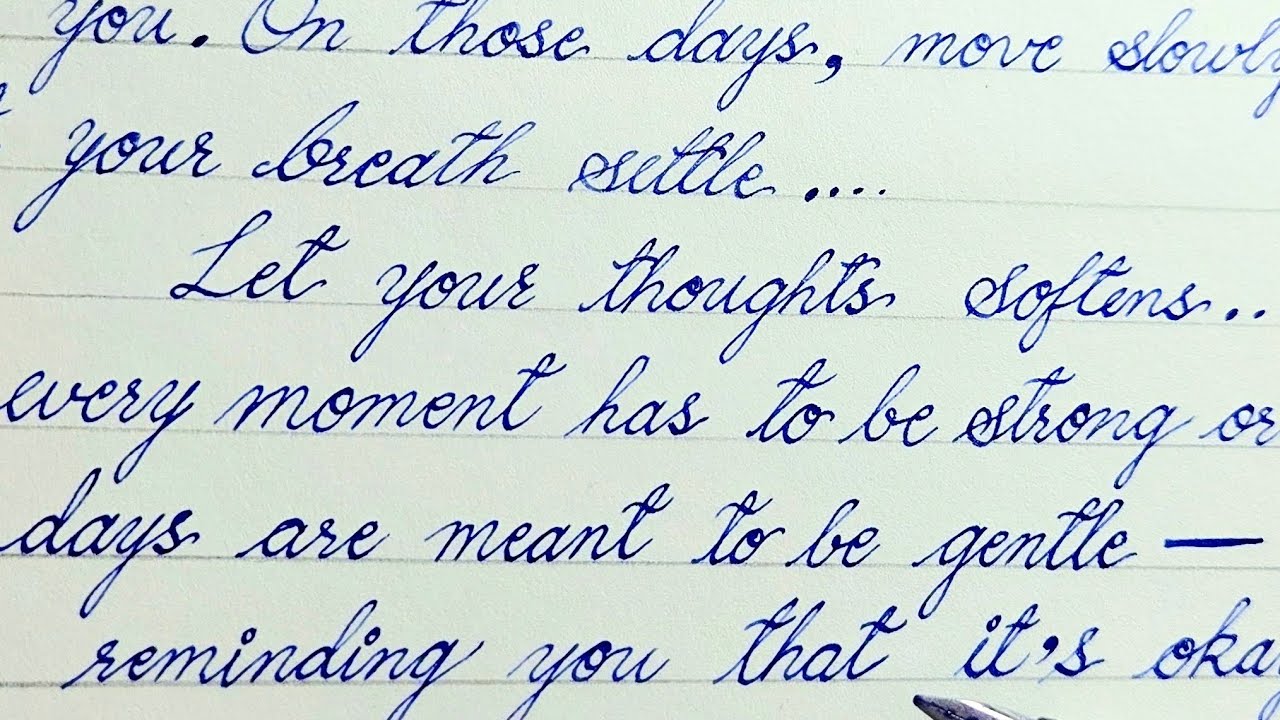 you. On those days, move slowly
your breath settle....
Let your thoughts softens..
every moment has to be strong or
days are meant to be gentle —
reminding you that it's okay